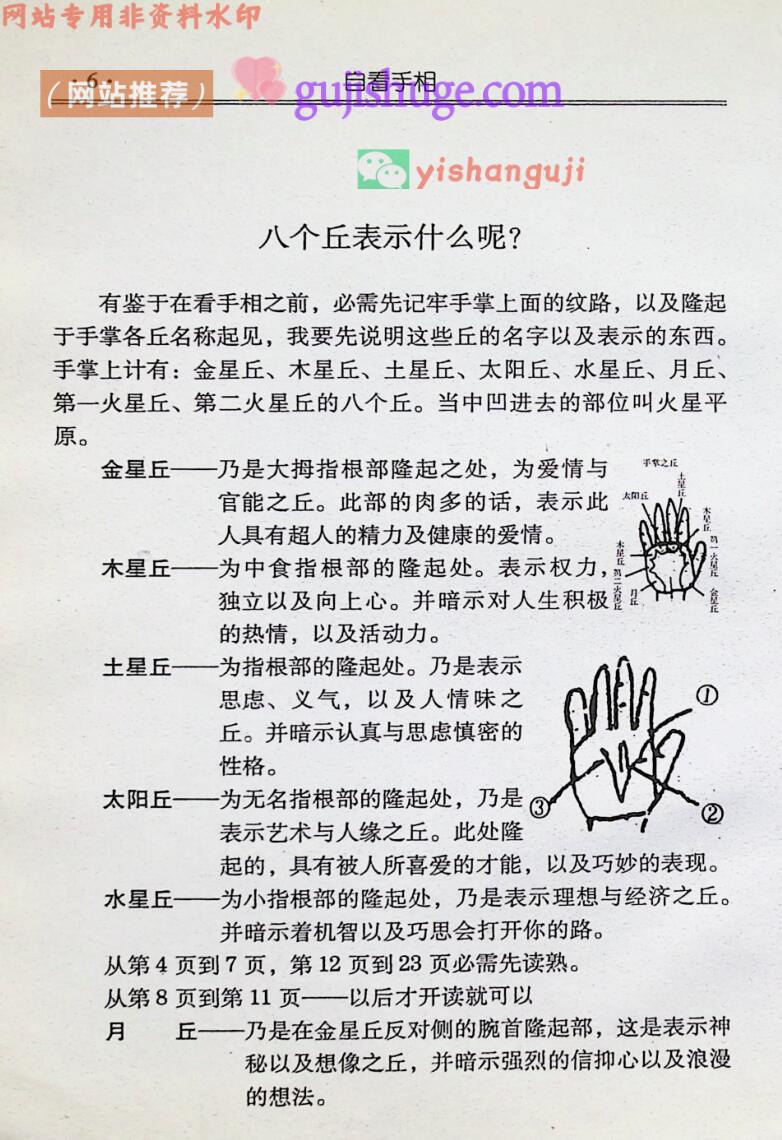 网站专用非资料水印
·6·
自看手相
（网站推荐）
gujishuge.com
yishanguji
八个丘表示什么呢？
有鉴于在看手相之前，必需先记牢手掌上面的纹路，以及隆起
于手掌各丘名称起见，我要先说明这些丘的名字以及表示的东西。
手掌上计有：金星丘、木星丘、土星丘、太阳丘、水星丘、月丘、
第一火星丘、第二火星丘的八个丘。当中凹进去的部位叫火星平
原。
金星丘——乃是大拇指根部隆起之处，为爱情与
官能之丘。此部的肉多的话，表示此
人具有超人的精力及健康的爱情。
木星丘——为中食指根部的隆起处。表示权力，
独立以及向上心。并暗示对人生积极
的热情，以及活动力。
手掌之丘
土星丘
太阳丘
木星丘
第一火星丘
金星丘
木星丘
第二火星丘
月丘
土星丘——为指根部的隆起处。乃是表示
思虑、义气，以及人情味之
丘。并暗示认真与思虑慎密的
性格。
太阳丘——为无名指根部的隆起处，乃是
表示艺术与人缘之丘。此处隆
起的，具有被人所喜爱的才能，以及巧妙的表现。
①
②
③
水星丘——为小指根部的隆起处，乃是表示理想与经济之丘。
并暗示着机智以及巧思会打开你的路。
从第 4 页到 7 页，第 12 页到 23 页必需先读熟。
从第 8 页到第 11 页——以后才开读就可以
月　丘——乃是在金星丘反对侧的腕首隆起部，这是表示神
秘以及想像之丘，并暗示强烈的信抑心以及浪漫
的想法。